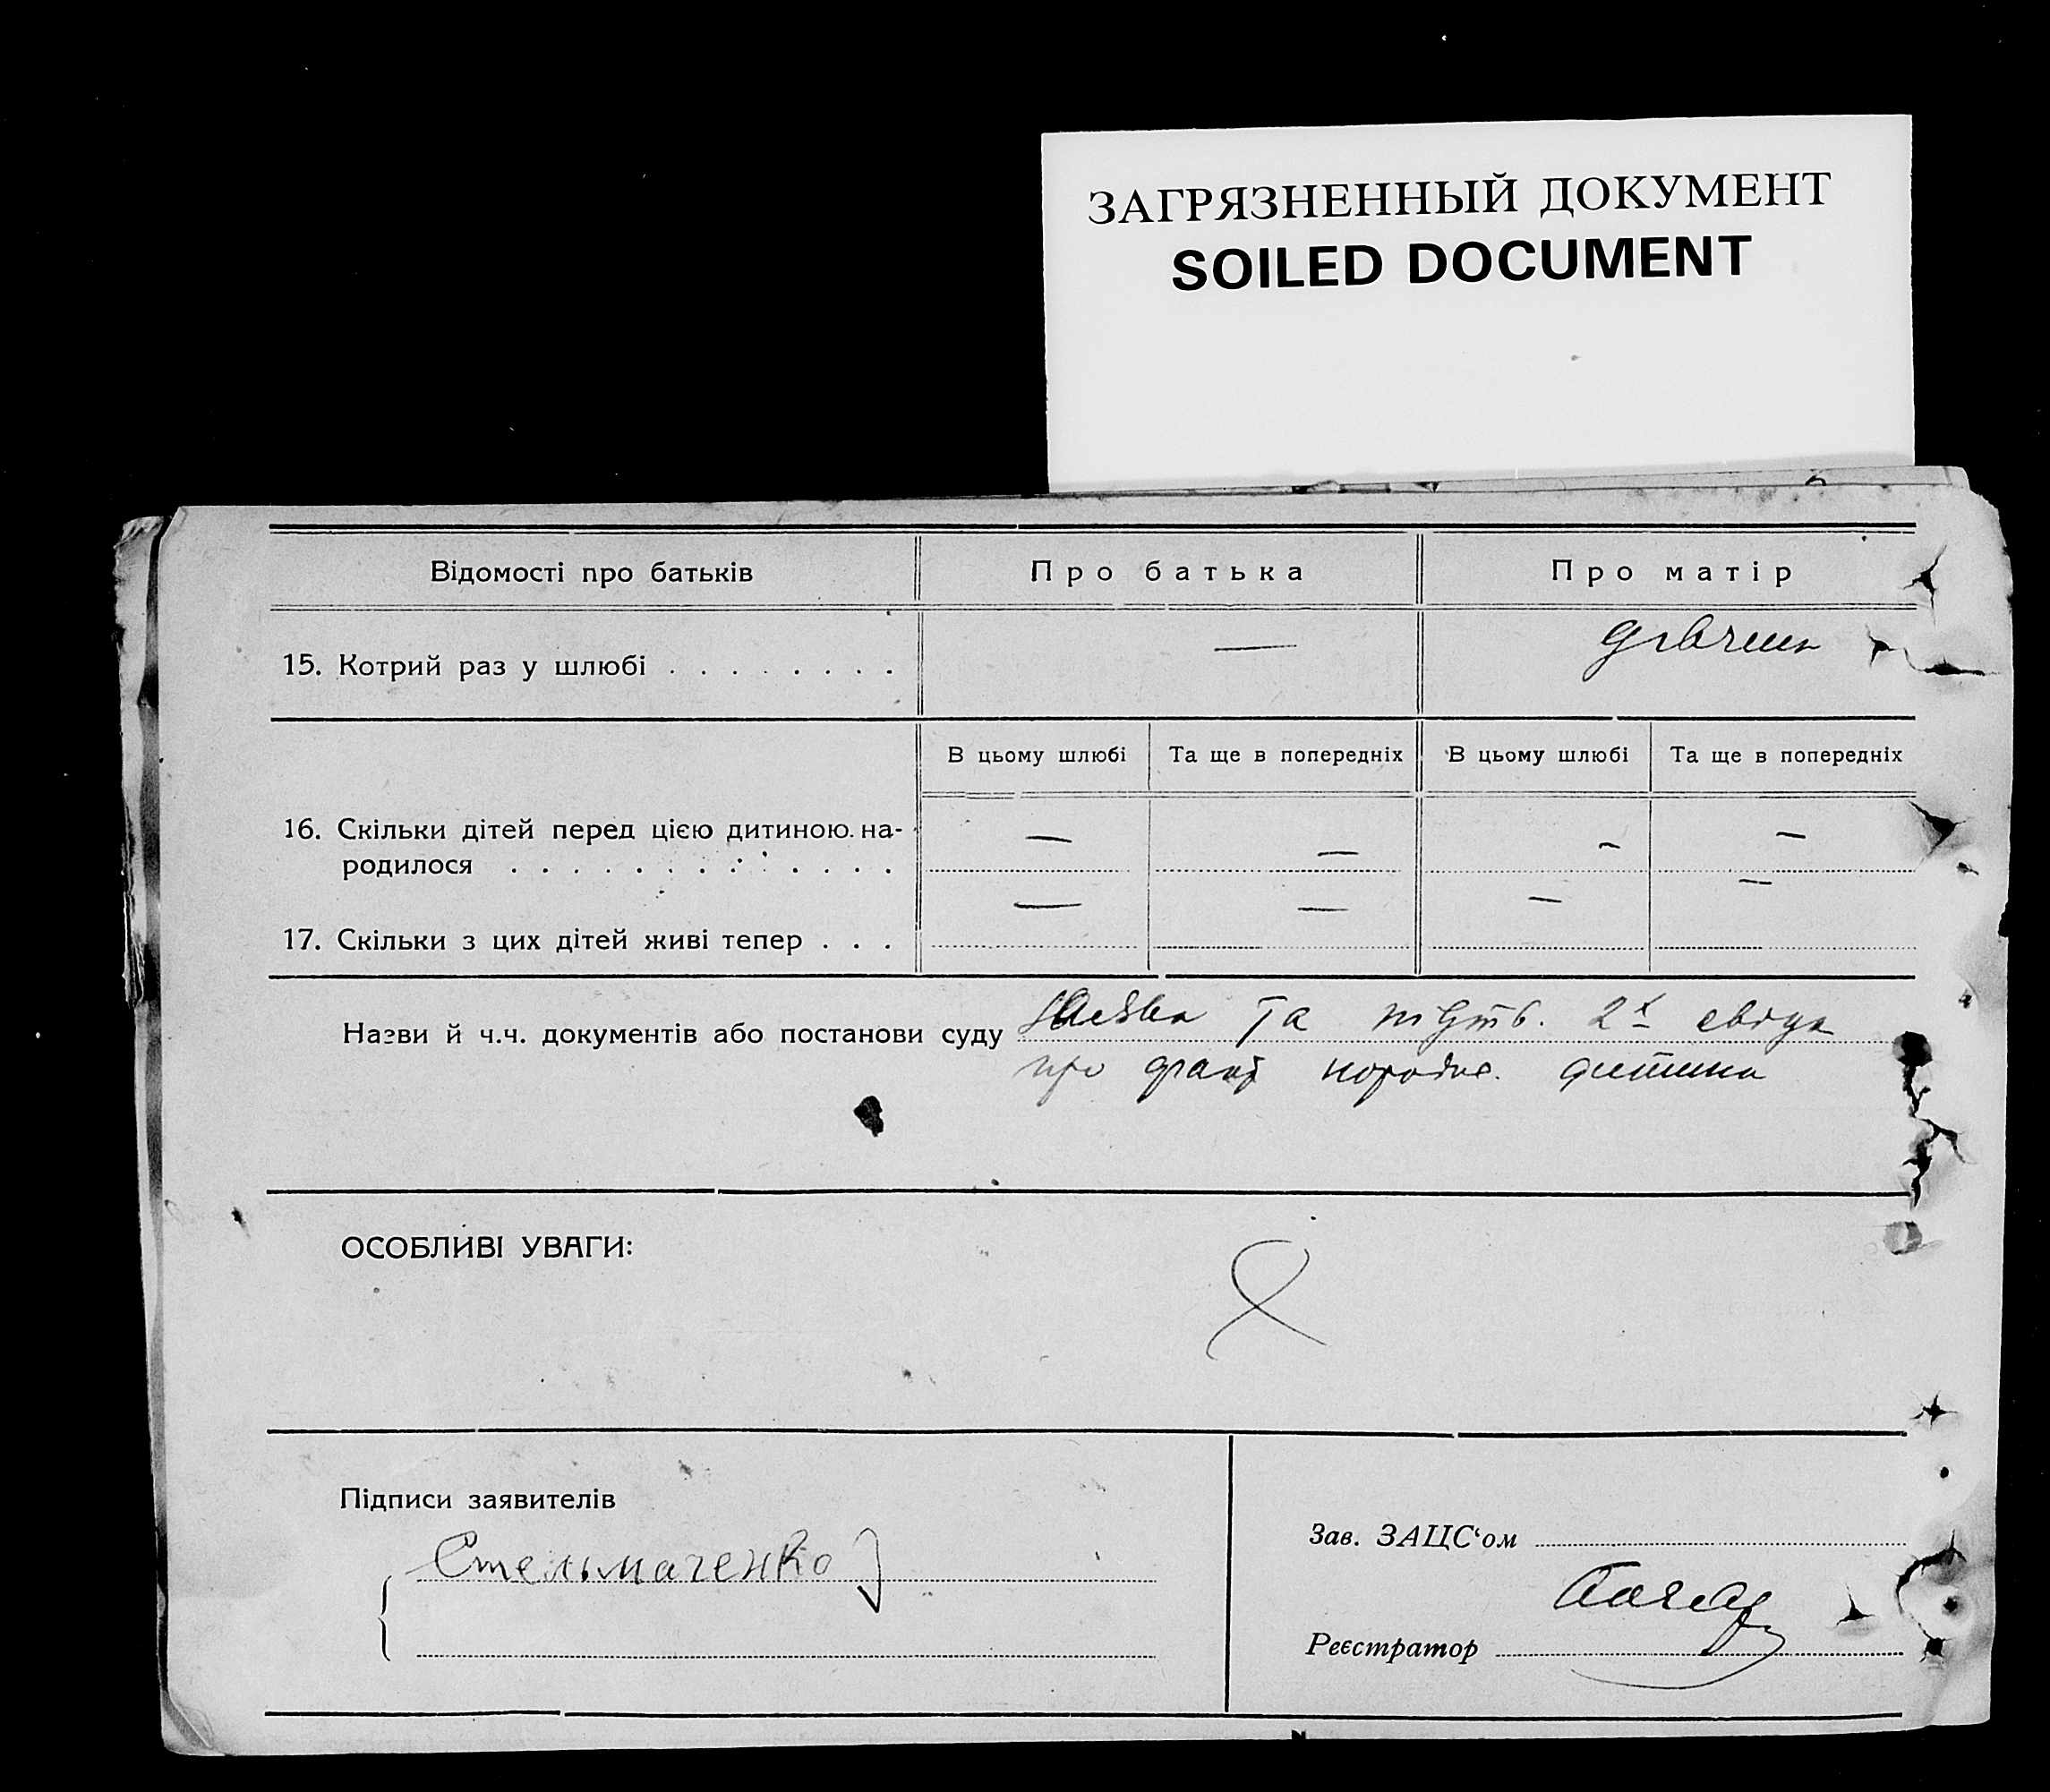 ЗАГРЯЗНЕННЫЙ ДОКУМЕНТ
SOILED DOCUMENT
Відомості про батьків
Про батька
Про матір
15. Котрий раз у шлюбі . . . . . . . .
—
В цьому шлюбі
Та ще в попередніх
В цьому шлюбі
Та ще в попередніх
16. Скільки дітей перед цією дитиною на-
родилося . . . . . . . . . . . . .
— — — —
17. Скільки з цих дітей живі тепер . . .
— — — —
Назви й ч.ч. документів або постанови суду Заява та 2х
про факт дитини
ОСОБЛИВІ УВАГИ:
Підписи заявителів
Стельмаченко
Зав. ЗАЦС‘ом
Реєстратор